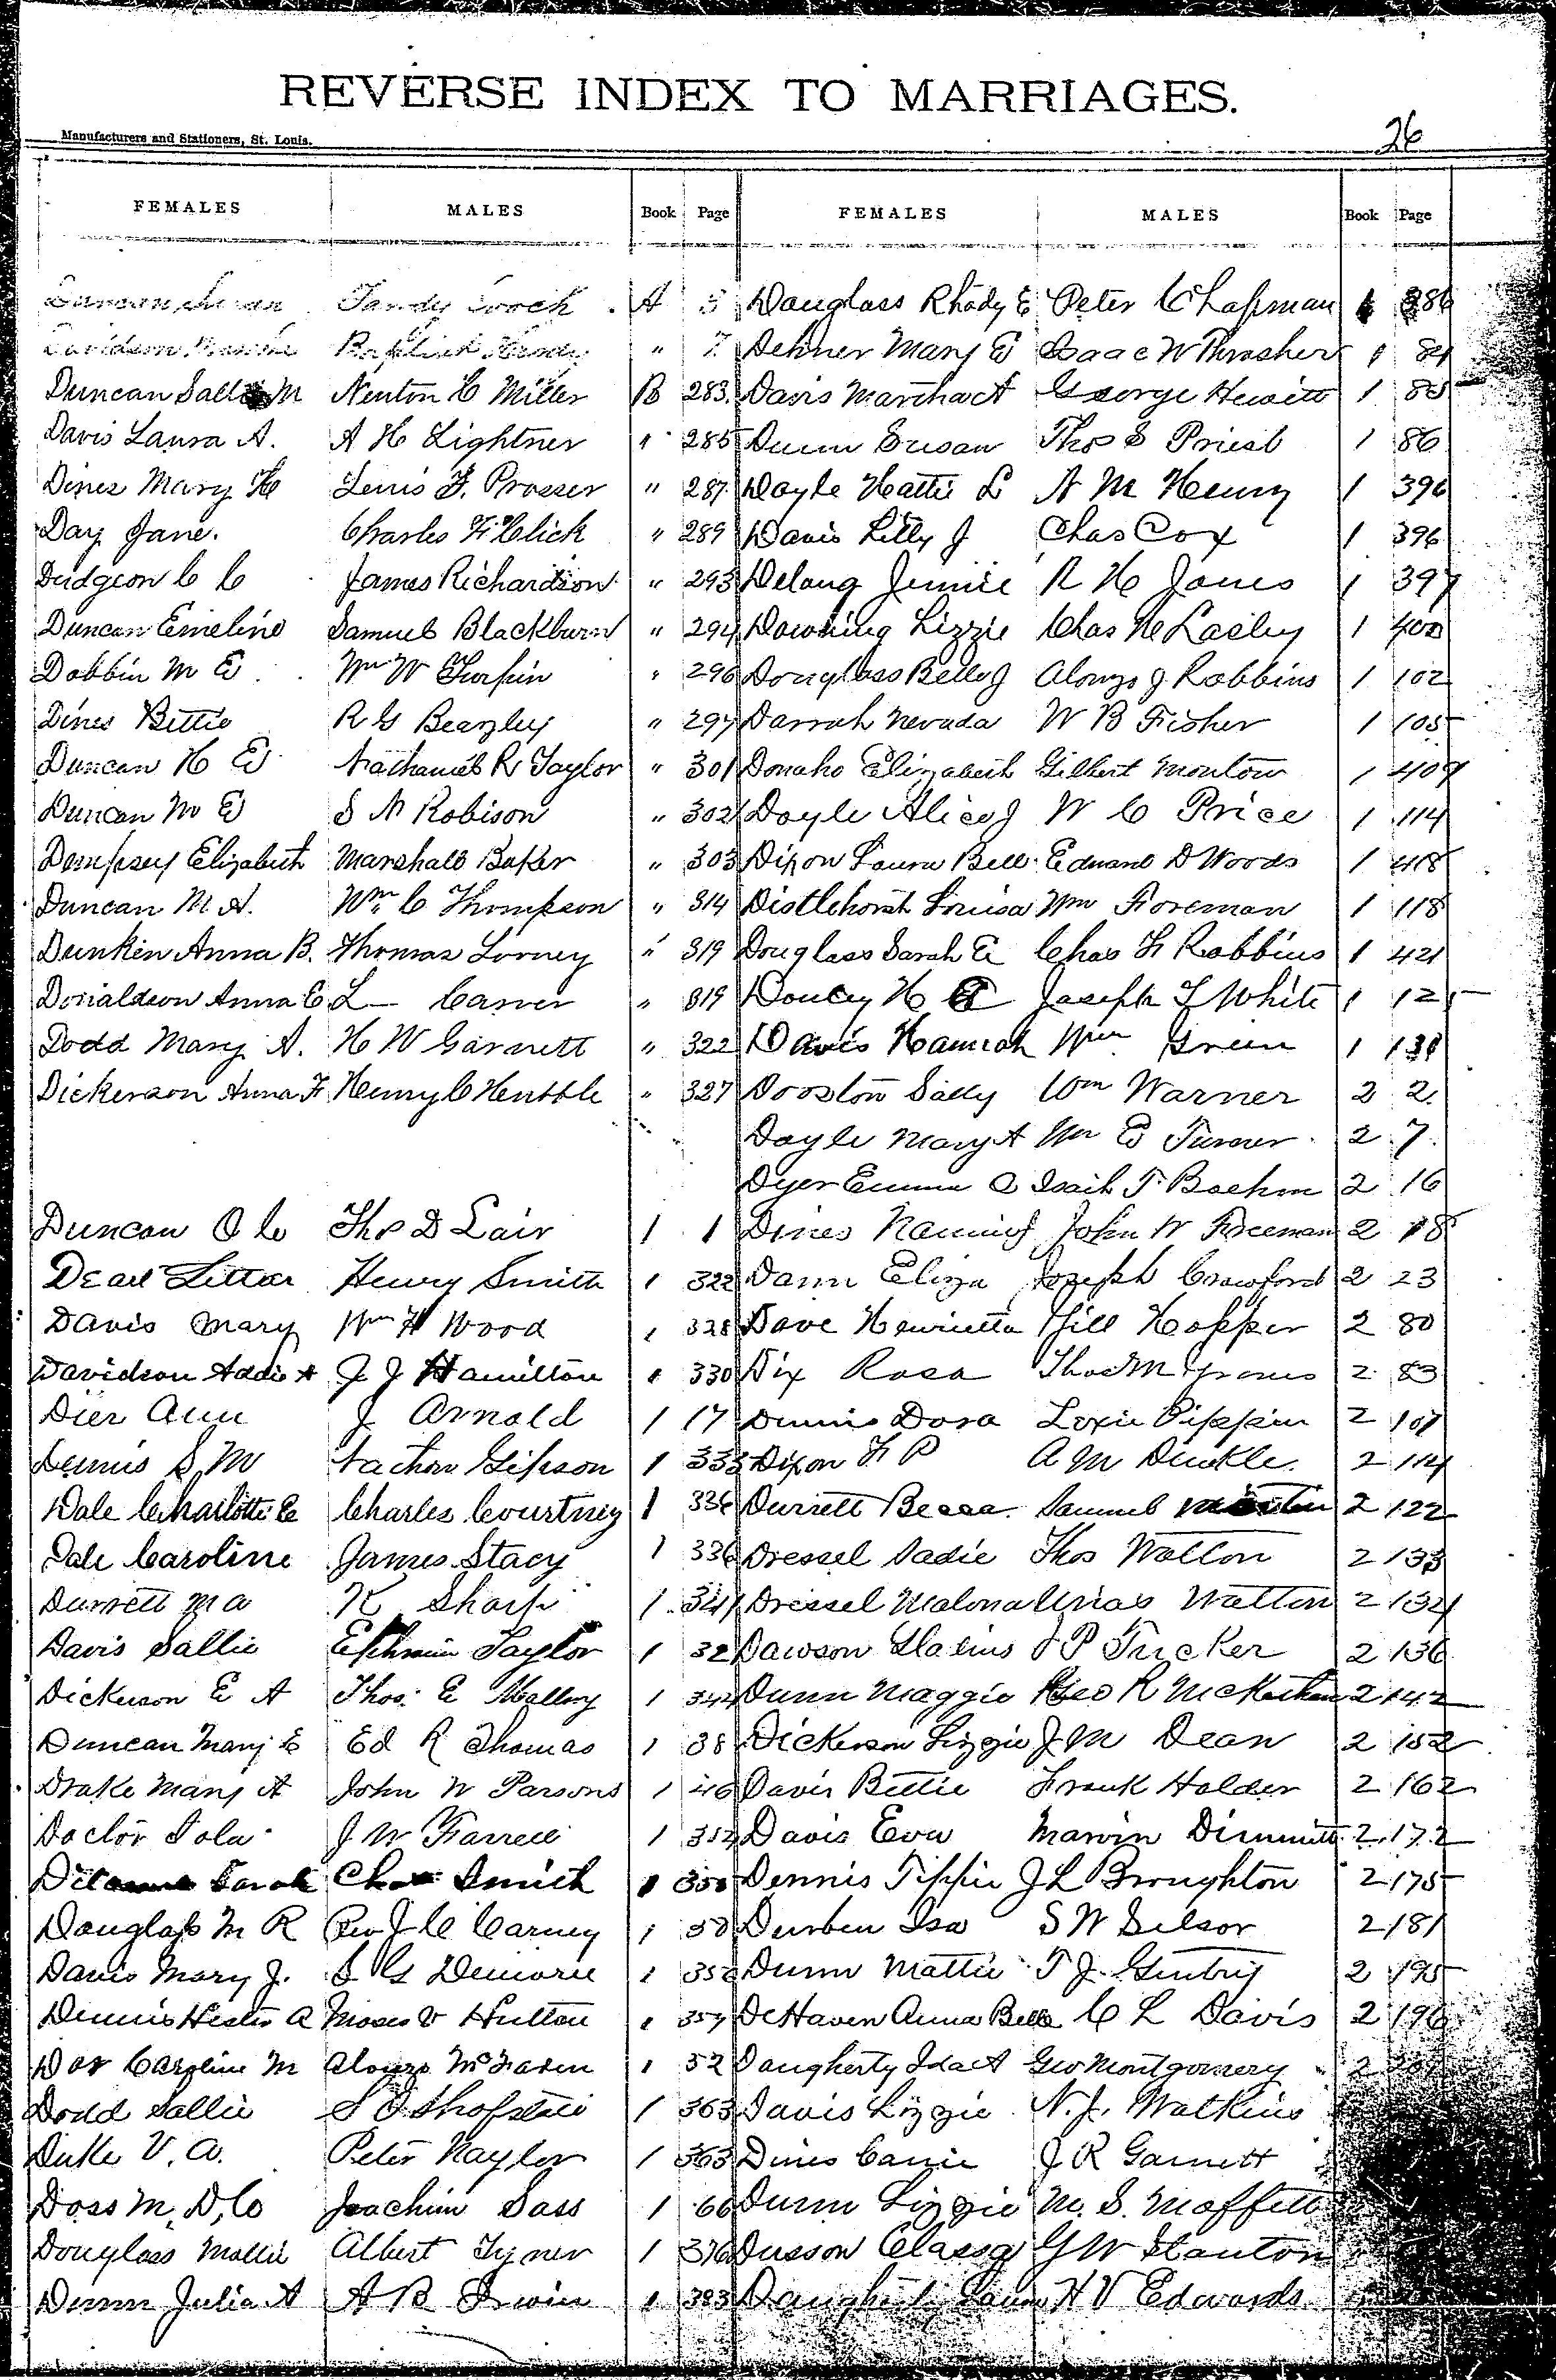 REVERSE INDEX TO MARRIAGES.
Manufacturers and Stationers, St. Louis.
26
FEMALES MALES Book Page
Duncan Tandy A 5
" 7
Duncan Sallie M Newton C Miller B 283
Davis Laura A. A H Lightner " 285
Dines Mary H Lewis F. Prosser " 287
Day Jane. Charles F. Click " 289
Dudgeon C C James Richardson " 293
Duncan Emeline Samuel Blackburn " 294
Dobbin M E Wm W Turpin " 296
Dines Bettie R G Beazley " 297
Duncan H E Nathaniel R Taylor " 301
Duncan M E S N Robison " 302
Dempsey Elizabeth Marshall Baker " 303
Duncan M A. Wm C Thompson " 314
Dunkin Anna B. Thomas Lorney " 319
Donaldson Anna E L— Carver " 319
Dodd Mary A. H W Garnett " 322
Dickerson Anna F Henry C Hentble " 327
Duncan O C Thos D Lair 1 1
Dearl Henry Smith 1 322
Davis Mary Wm H Wood 1 328
Davidson Addie A J J Hamilton 1 330
Dier Ann J Arnold 1 17
Dennis S M Nathan Gipson 1 333
Dale Charlotte E Charles Courtney 1 336
Dale Caroline James Stacy 1 336
Durrett M A K Sharp 1 341
Davis Sallie Ephraim Taylor 1 32
Dickerson E A Thos. E Mallory 1 344
Duncan Mary E Ed R Thomas 1 38
Drake Mary A John W Parsons 1 46
Doctor Iola J W Farrell 1 352
Sarah Chas Smith 1 355
Douglass M R Rev J C Carney 1 50
Davis Mary J. S G Demaree 1 356
Dennis Hester A Moses V Hutton 1 357
Caroline M Alonzo McFaden 1 52
Dodd Sallie S D Shofstall 1 363
Duke V. A. Peter Naylor 1 363
Doss M. D. C Joachim Sass 1 66
Douglass Mollie Albert Tyner 1 376
Dunn Julia A A B Irwin 1 383
FEMALES MALES Book Page
Douglass Rhody E Peter C Chapman 1 386
Dehner Mary E Isaac W Thrasher 1 84
Davis Martha A George Hewitt 1 85
Dunn Susan Thos S Priest 1 86
Doyle Hattie L A M Henry 1 396
Davis Lilly J Chas Cox 1 396
Delang Jennie R H Jones 1 397
Downing Lizzie Chas N Lasley 1 400
Douglass Belle J Alonzo J Robbins 1 102
Darrah Nevada W B Fisher 1 105
Donaho Elizabeth Gilbert Montow 1 409
Doyle Alice J W C Price 1 114
Dixon Laura Bell Edward D Woods 1 418
Distlehorst Louisa Wm Foreman 1 118
Douglass Sarah E Chas F Robbins 1 421
Doucey H E Joseph L White 1 125
Davis Hannah Wm Green 1 131
Dooston Sally Wm Warner 2 2
Doyle Mary A Wm E Turner 2 7
Dyer Emma A Isaih T Boehm 2 16
Dines Nannie J John W Freeman 2 18
Dann Eliza Joseph Crawford 2 23
Dave Henrietta Hill Hopper 2 80
Dix Rosa Thos M Graves 2 83
Dennis Dora Loxie Pippin 2 107
Dixon F P A M Dunkle 2 114
Durrett Becca Samuel Martin 2 122
Dressel Sadie Thos Walton 2 133
Dressel Malona Urias Walton 2 134
Dawson J P Tucker 2 136
Dunn Maggie Geo R 2 142
Dickerson Lizzie J M Dean 2 152
Davis Bettie Frank Holder 2 162
Davis Eva Marvin Dimmitt 2 172
Dennis Tippie J L Broughton 2 175
Durben Isa S W Silsor 2 181
Dunn Mattie T J. Gentry 2 195
DeHaven Anna Belle C L Davis 2 196
Daugherty Ida A Geo Montgomery 2
Davis Lizzie N. J. Watkins
Dines Carrie J R Garnett
Dunn Lizzie M. S. Moffett
Dusson Classa G W Stanton
Daugherty Laura H V Edwards